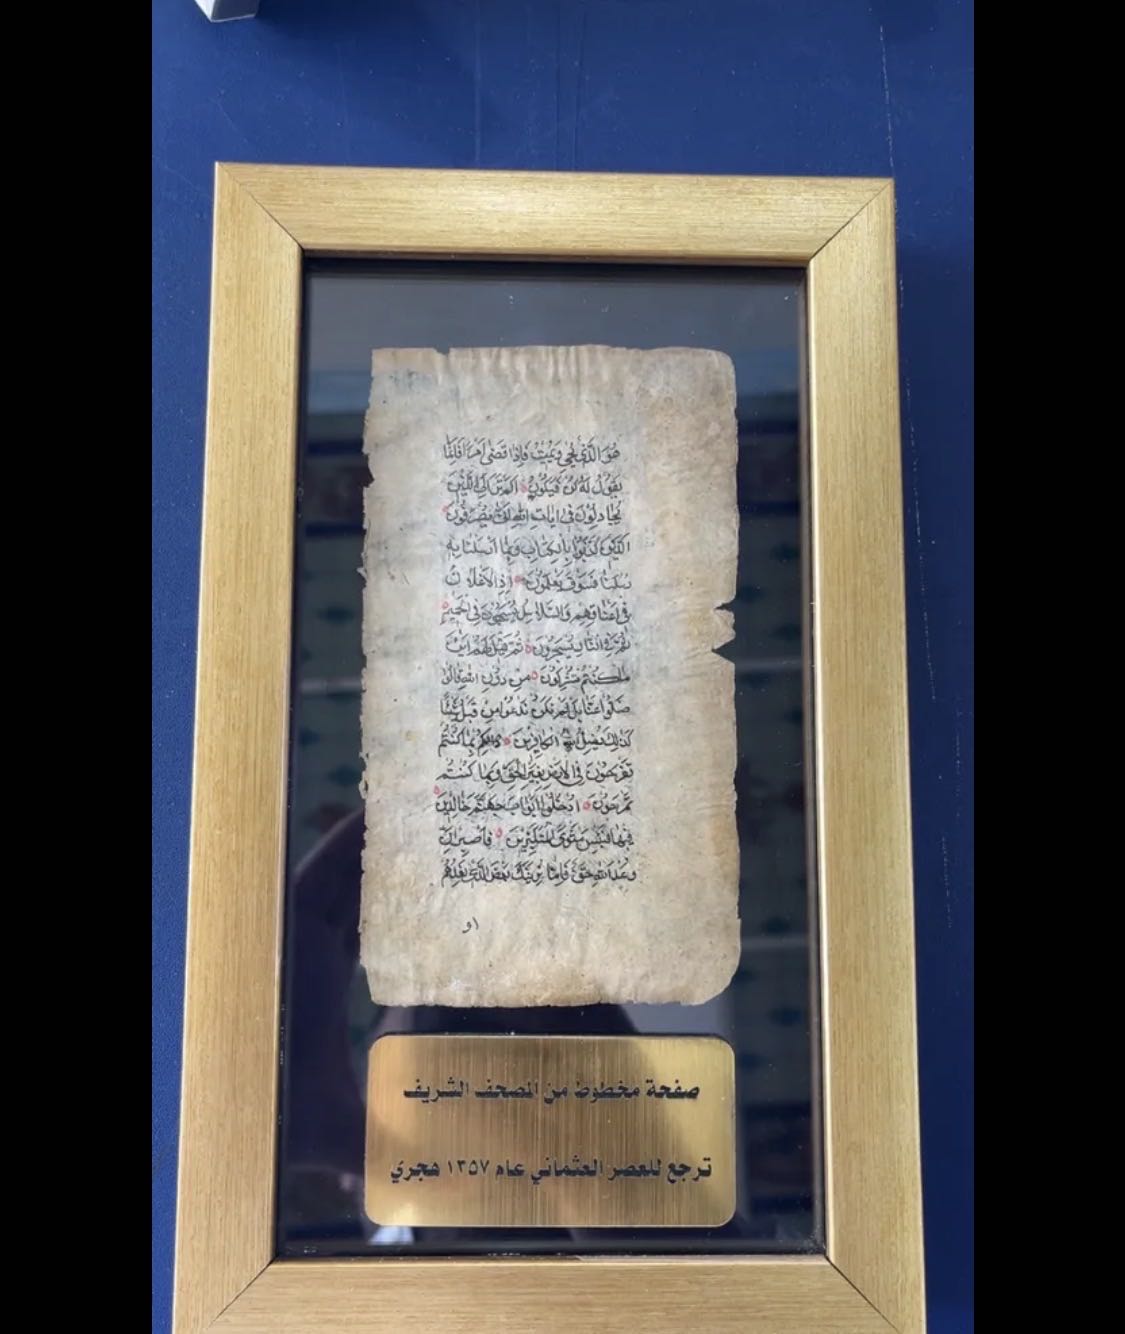 هُوَ الَّذِي يُحْيِي وَيُمِيتُ فَإِذَا قَضَى أَمْرًا فَإِنَّمَا
يَقُولُ لَهُ كُنْ فَيَكُونُ أَلَمْ تَرَ إِلَى الَّذِينَ
يُجَادِلُونَ فِي آيَاتِ اللهِ أَنَّى يُصْرَفُونَ
الَّذِينَ كَذَّبُوا بِالْكِتَابِ وَبِمَا أَرْسَلْنَا بِهِ
رُسُلَنَا فَسَوْفَ يَعْلَمُونَ إِذِ الْأَغْلَالُ
فِي أَعْنَاقِهِمْ وَالسَّلَاسِلُ يُسْحَبُونَ فِي الْحَمِيمِ
ثُمَّ فِي النَّارِ يُسْجَرُونَ ثُمَّ قِيلَ لَهُمْ أَيْنَ
مَا كُنْتُمْ تُشْرِكُونَ مِنْ دُونِ اللهِ قَالُوا
ضَلُّوا عَنَّا بَلْ لَمْ نَكُنْ نَدْعُو مِنْ قَبْلُ شَيْئًا
كَذَلِكَ يُضِلُّ اللهُ الْكَافِرِينَ ذَلِكُمْ بِمَا كُنْتُمْ
تَفْرَحُونَ فِي الْأَرْضِ بِغَيْرِ الْحَقِّ وَبِمَا كُنْتُمْ
تَمْرَحُونَ ادْخُلُوا أَبْوَابَ جَهَنَّمَ خَالِدِينَ
فِيهَا فَبِئْسَ مَثْوَى الْمُتَكَبِّرِينَ فَاصْبِرْ إِنَّ
وَعْدَ اللهِ حَقٌّ فَإِمَّا نُرِيَنَّكَ بَعْضَ الَّذِي نَعِدُهُمْ
او
صفحة مخطوط من المصحف الشريف
ترجع للعصر العثماني عام ١٣٥٧ هجري